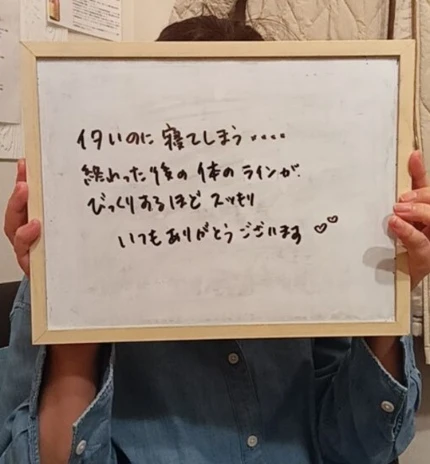 イタいのに 寝てしまう....
終わった後の 体のラインが
びっくりするほど スッキリ
いつもありがとうございます ♡♡